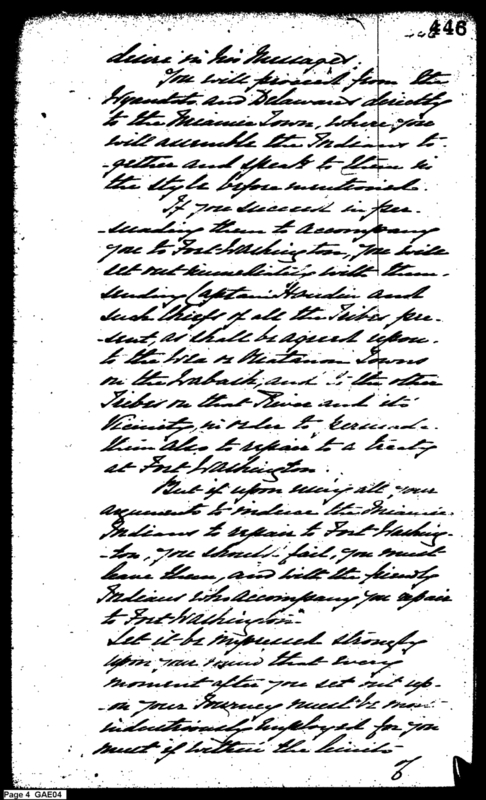 446
desire in his Messages.
You will proceed from the
Wyandots and Delawares directly
to the Miamie Town, where you
will assemble the Indians to-
-gether and speak to them in
the style before mentioned.
If you succeed in per-
-suading them to accompany
you to Fort Washington, you will
set out immediately with them
sending Captain Houdin and
such Chiefs of all the Tribes pre-
-sent, as shall be agreed upon.
to the Wea or Oiatanon Towns
on the Wabash, and to the other
Tribes on that River and its
Vicinity, in order to persuade
them also to repair to a treaty
at Fort Washington.
But if upon using all your
arguments to induce the Miamie
Indians to repair to Fort Washing-
-ton, you should fail, you must
leave them, and with the friendly
Indians who accompany you repair
to Fort Washington.
Let it be impressed strongly
upon your mind that every
moment after you set out up-
-on your Journey must be most
industriously employed for you
must if within the limits
of
Page 4 GAE04